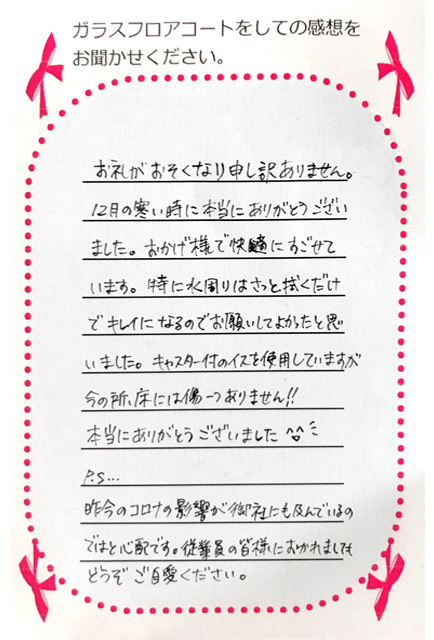 ガラスフロアコートをしての感想を
お聞かせください。
お礼がおそくなり申し訳ありません。
12月の寒い時に本当にありがとうござい
ました。おかげ様で快適にすごせて
います。特に水周りはさっと拭くだけ
でキレイになるのでお願いしてよかったと思
いました。キャスター付のイスを使用していますが
今の所、床には傷一つありません!!
本当にありがとうございました ^^
P.S...
昨今のコロナの影響が御社にも及んでいるの
ではと心配です。従業員の皆様におかれましても
どうぞご自愛ください。